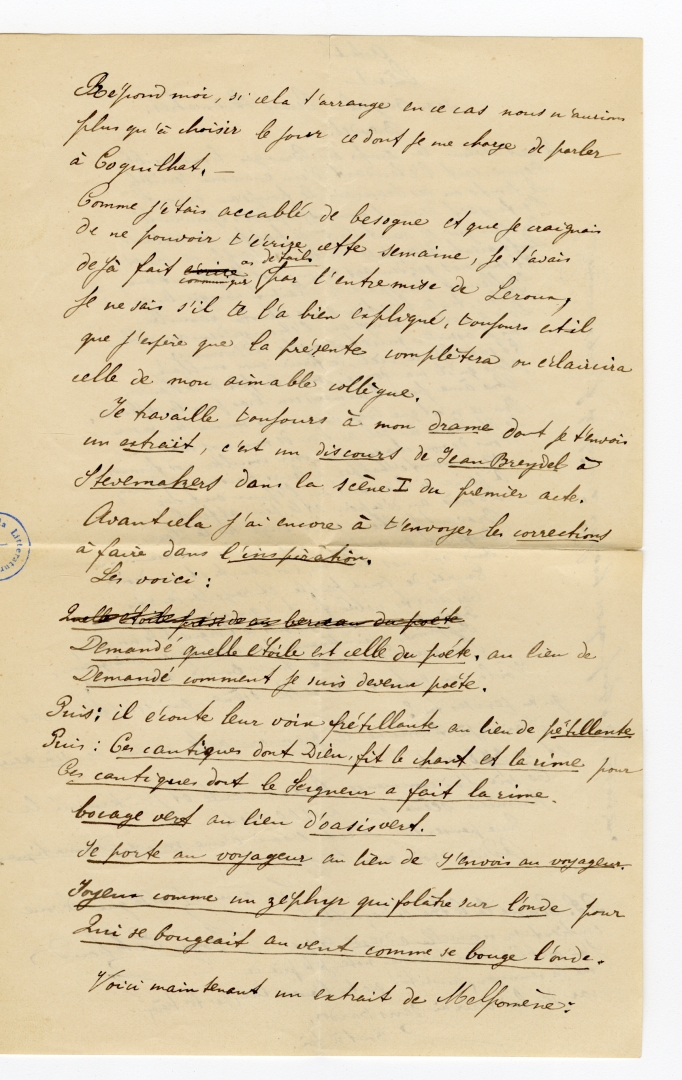 Répond moi, si cela t'arrange en ce cas nous n'aurions
plus qu'à choisir le jour ce dont je me charge de parler
à Coquilhat. —
Comme j'étais accablé de besogne et que je craignais
de ne pouvoir t'écrire cette semaine, je t'avais
déjà fait communiquer ces détails par l'entremise de Leroux,
Je ne sais s'il te l'a bien expliqué, toujours est il
que j'espère que la présente complètera ou éclaircira
celle de mon aimable collègue.
Je travaille toujours à mon drame dont je t'envois
un extrait, c'est un discours de Jean Breydel à
Stevemakers dans la scène I du premier acte.
Avant cela j'ai encore à t'envoyer les corrections
à faire dans l'inspiration.
Les voici :
Quelle étoile préside au berceau du poéte
Demandé quelle étoile est celle du poéte, au lieu de
Demandé comment je suis devenu poéte.
Puis : il écoute leur voix frétillante au lieu de pétillante
Puis : Ces cantiques dont Dieu, fit le chant et la rime pour
Ces cantiques dont le Seigneur a fait la rime.
bocage vert au lieu d'oasis vert.
Je porte au voyageur au lieu de J'envois au voyageur.
Joyeux comme un zéphyr qui folâtre sur l'onde pour
Qui se bougeait au vent comme se bouge l'onde.
Voici maintenant un extrait de Melpomène :